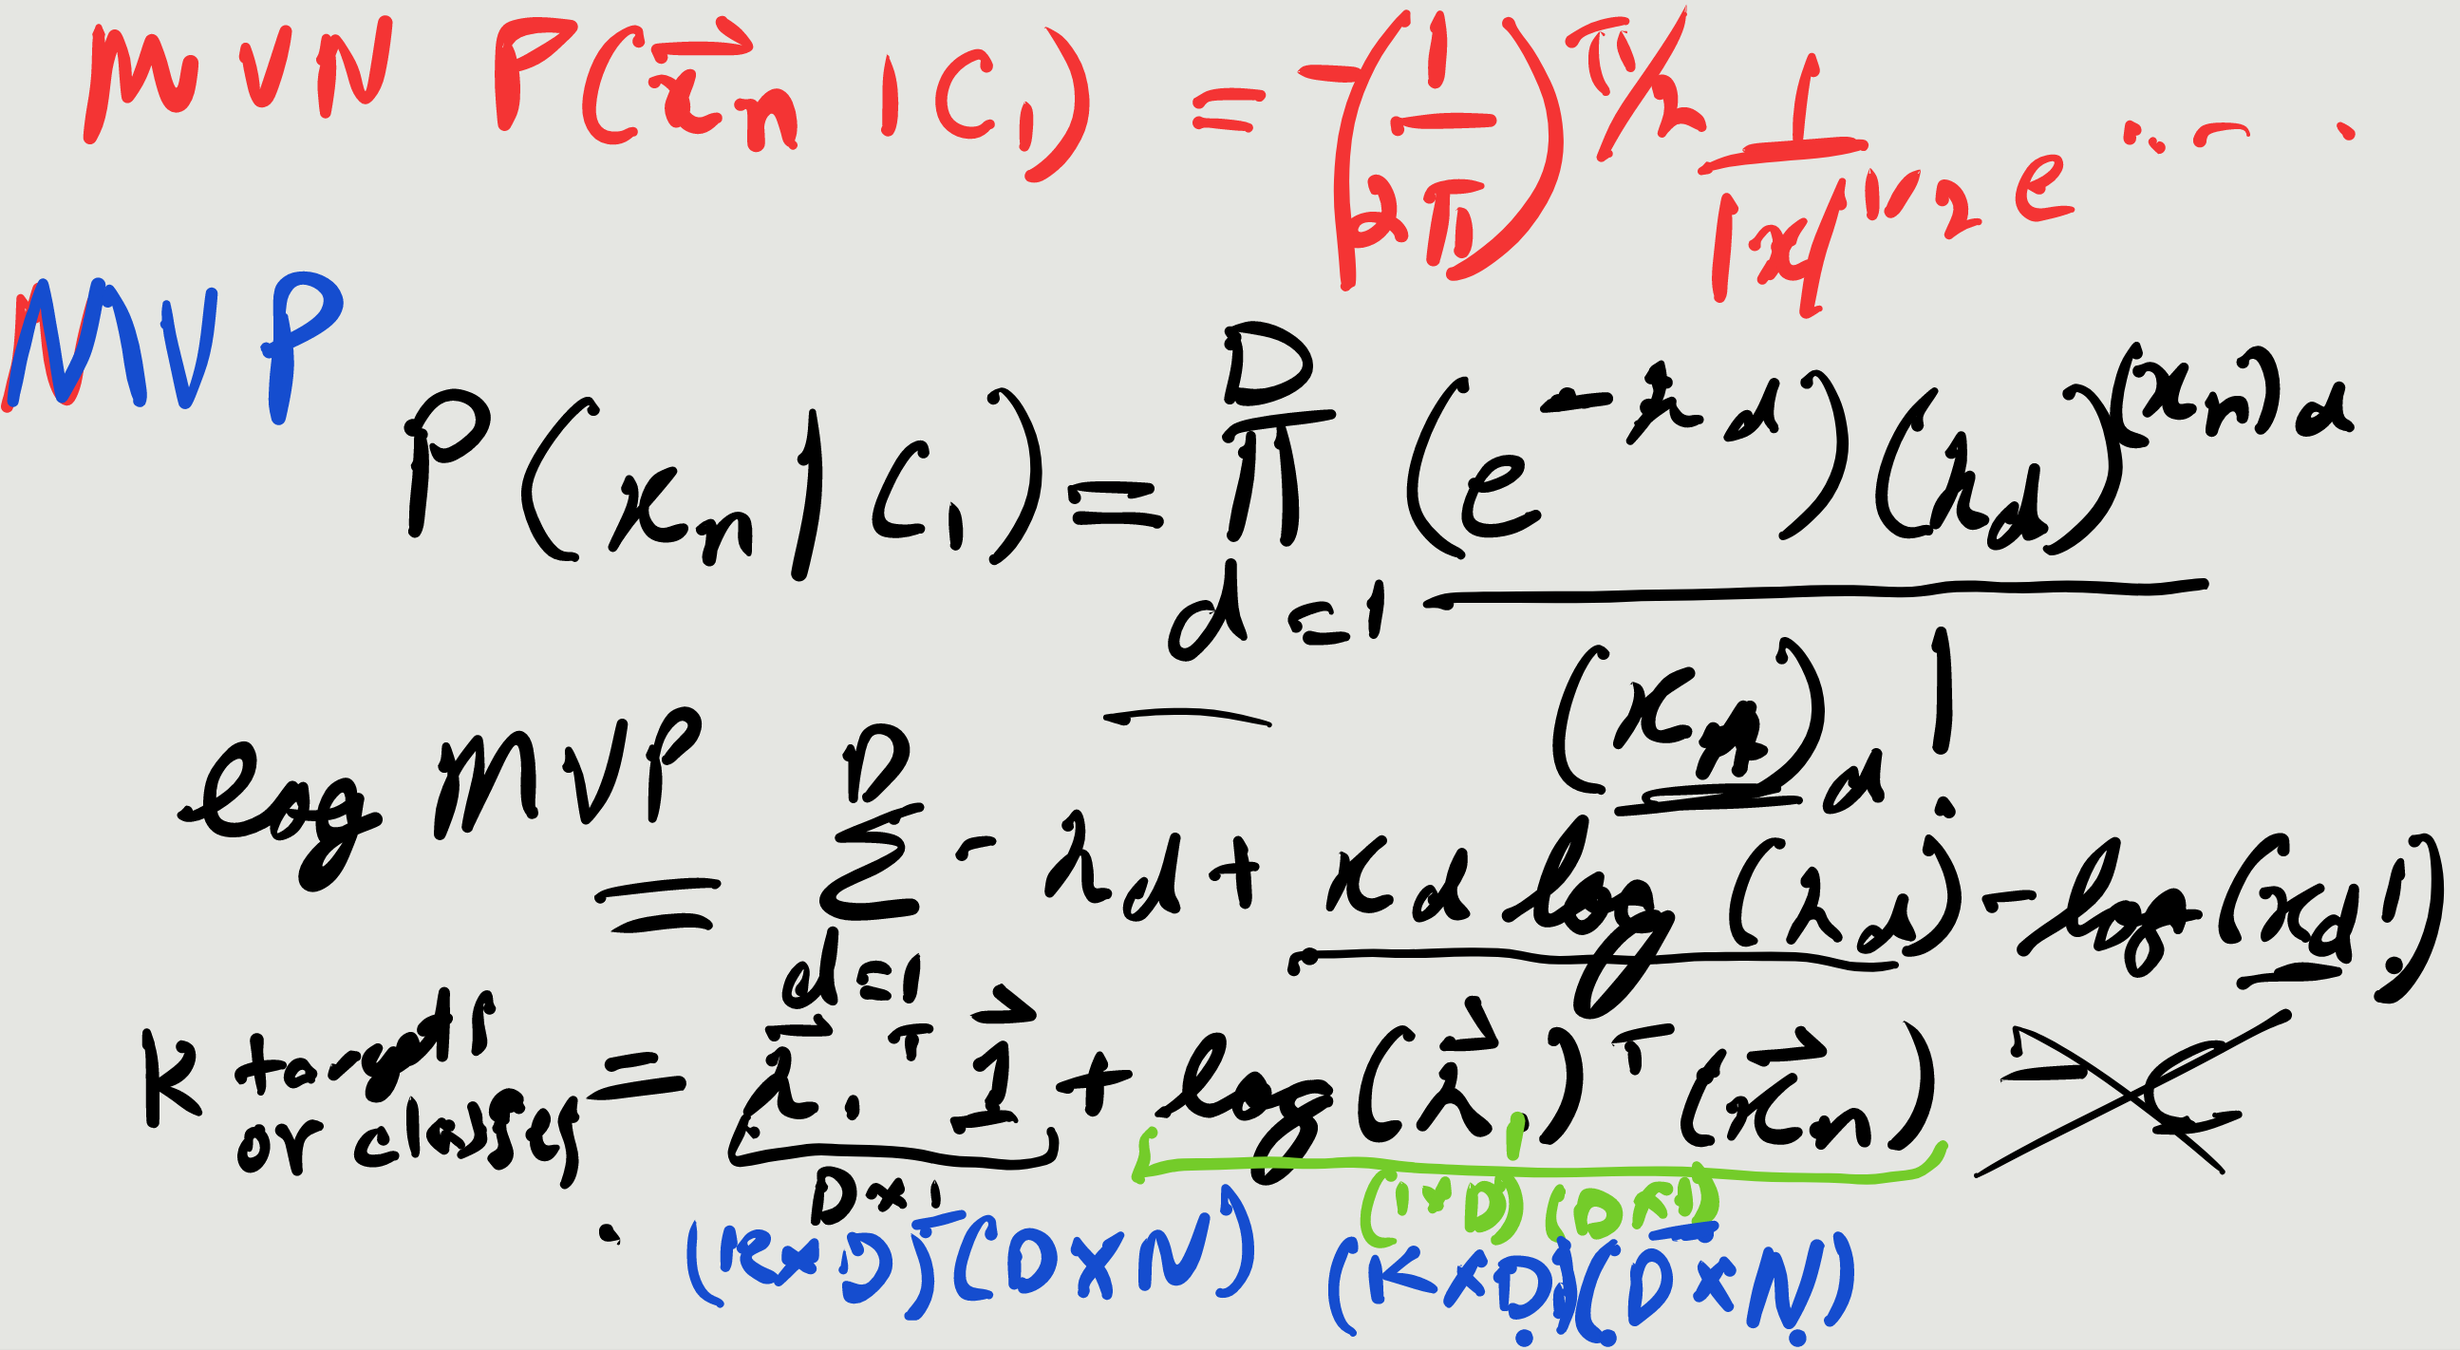 MVN P(x⃗n | C1) = (1/2π)^π/2 1/|Σ|^1/2 e ....
MVP
P(xn | C1) = D Π d=1 (e^-λd)(λd)^(xn)d / (xn)d !
log MVP = D Σ d=1 - λd + xd log(λd) - log(xd!)
K targets or classes = λ⃗^T . 1⃗ + log(λ⃗)^T (x⃗n)
D×1 (1×D) (D×1)
(K×D)(D×N) (K×D)(D×N)